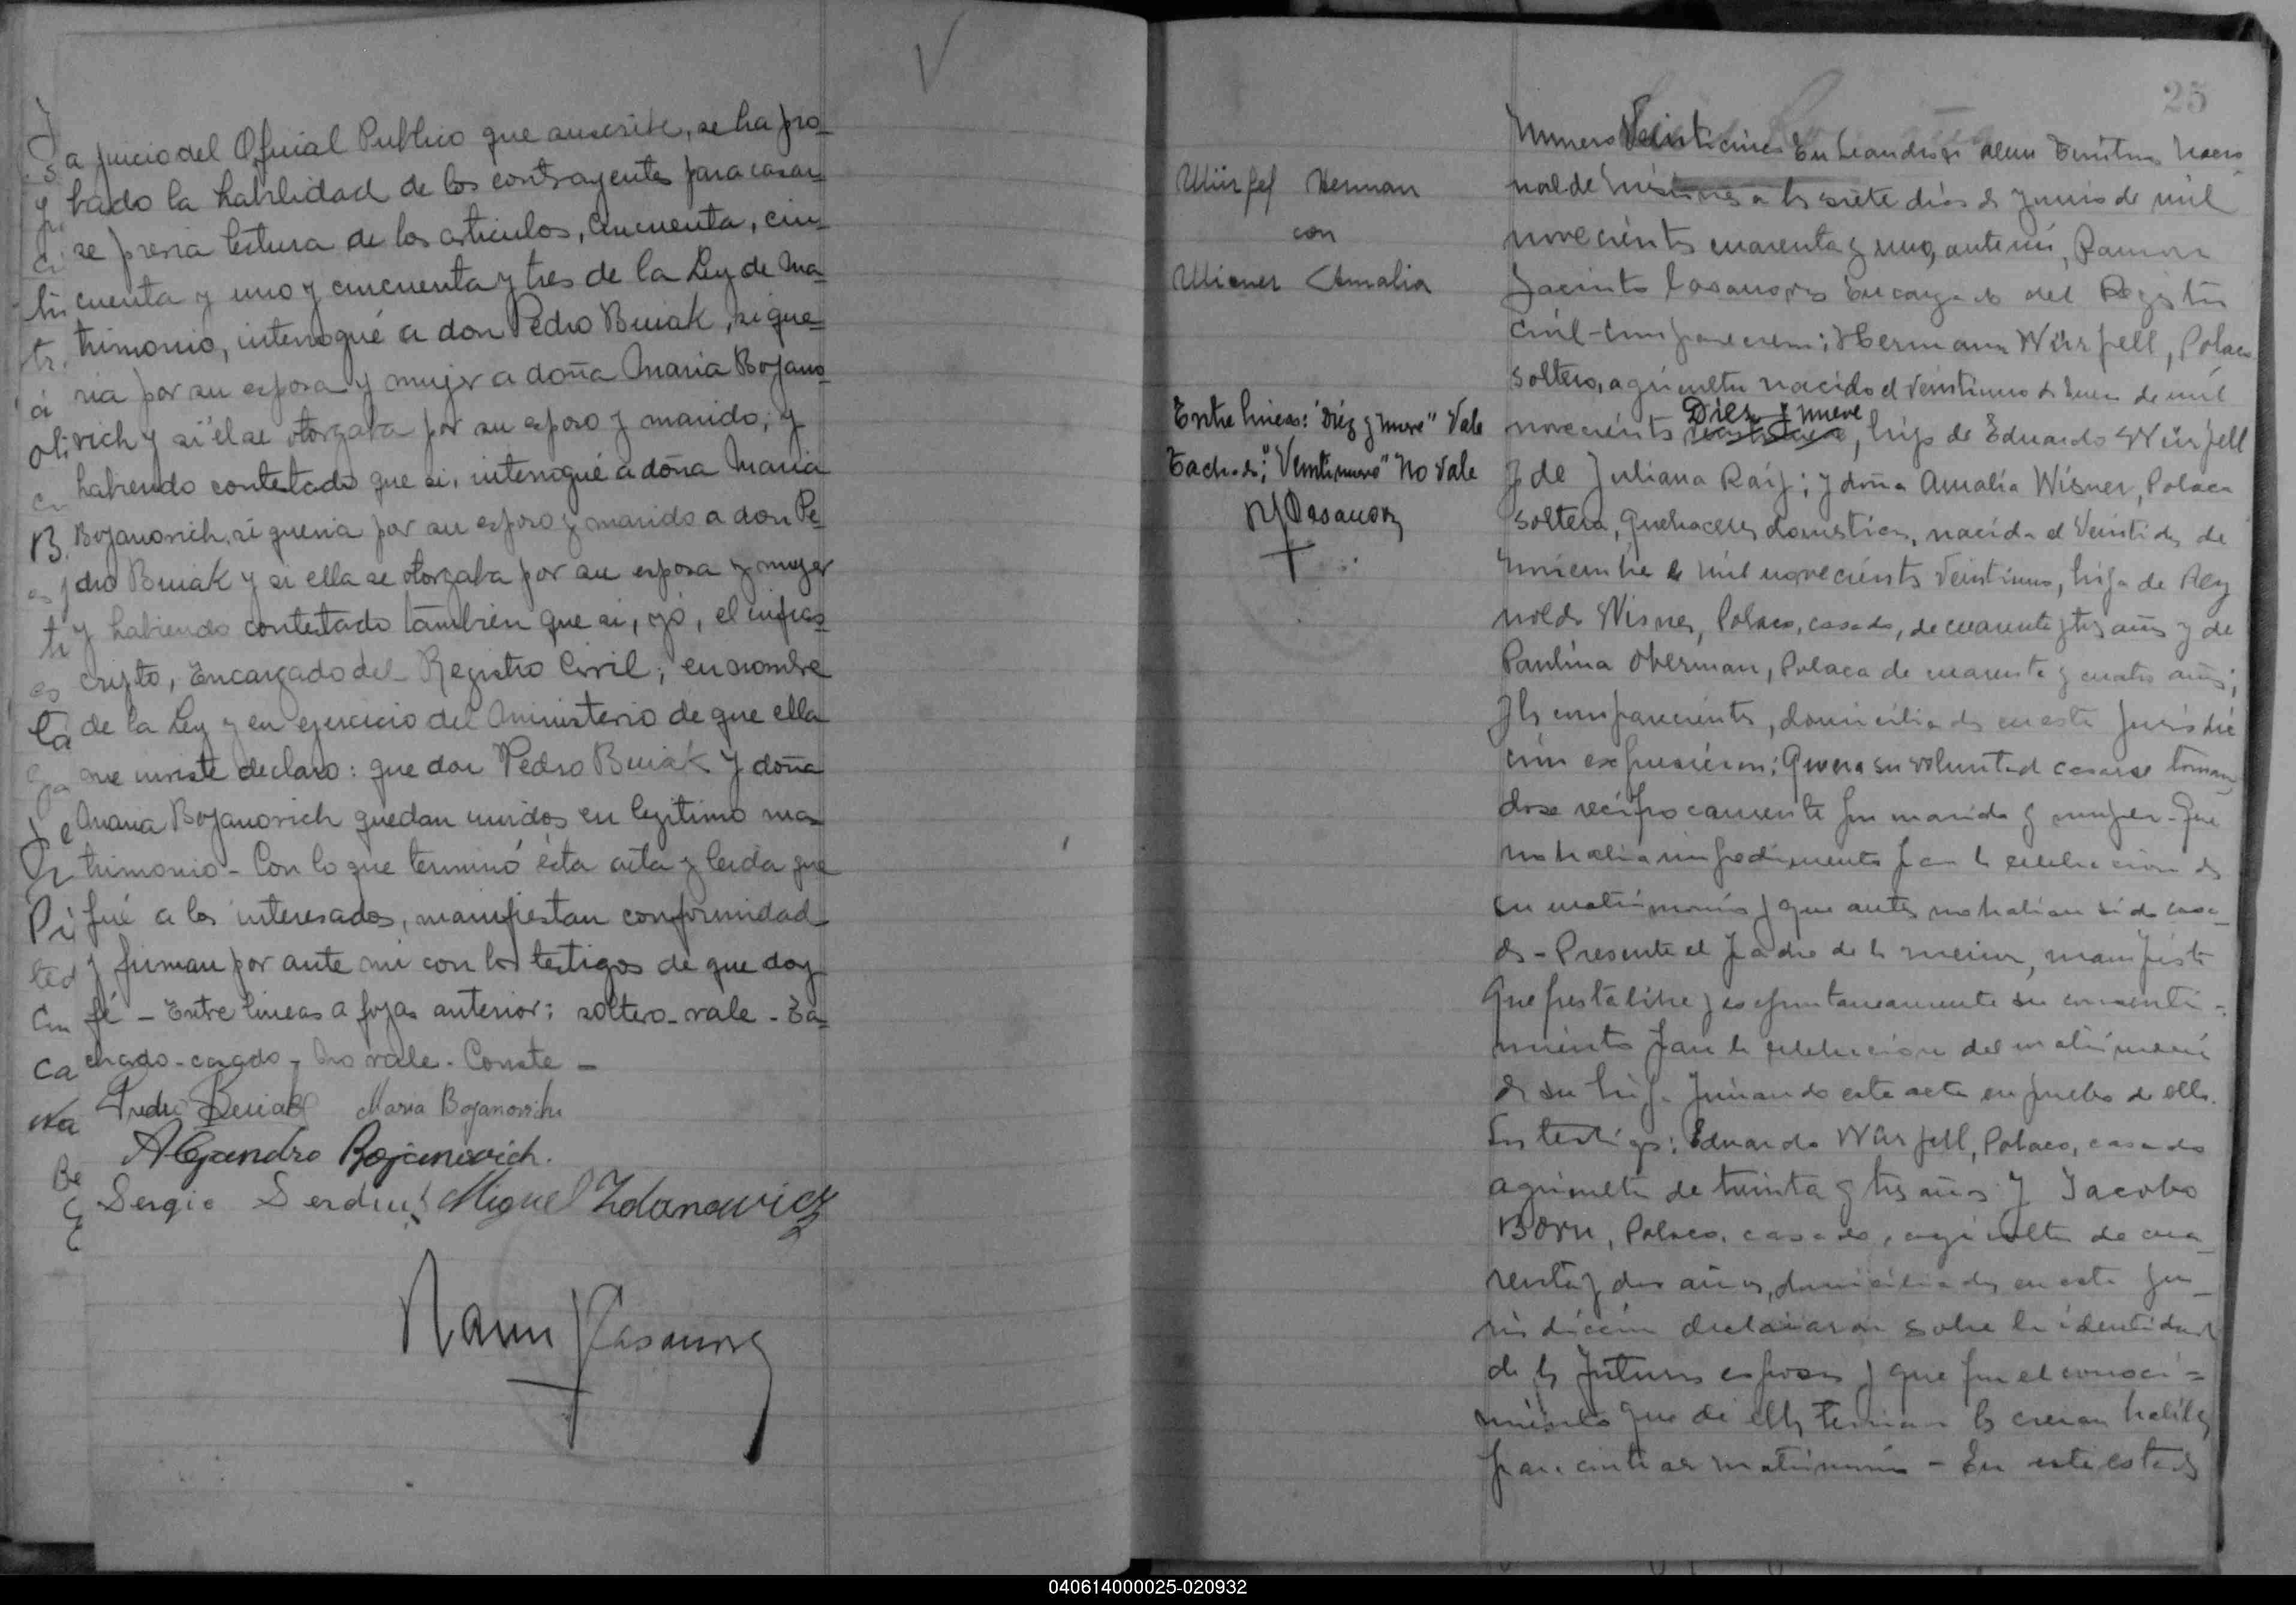 a juicio del Oficial Publico que suscribe, se ha pro-
bado la habilidad de los contrayentes para casar-
se previa lectura de los articulos, cincuenta, cin-
cuenta y uno y cincuenta y tres de la Ley de Ma-
trimonio, interrogué a don Pedro Buiak, si que-
ria por su esposa y mujer a doña Maria Bojano-
vich y si él se otorgaba por su esposo y marido; y
habiendo contestado que si, interrogué a doña Maria
Bojanovich, si queria por su esposo y marido a don Pe-
dro Buiak y si ella se otorgaba por su esposa y mujer
y habiendo contestado también que si, yó, el infras-
cripto, Encargado del Registro Civil; en nombre
de la Ley y en ejercicio del Ministerio de que ella
me inviste declaro: que don Pedro Buiak y doña
Maria Bojanovich quedan unidos en legitimo ma-
trimonio - Con lo que terminó ésta acta y leida que
fué a los interesados, manifiestan conformidad
y firman por ante mi con los testigos de que doy
fé - Entre lineas a fojas anterior: soltero - vale - Ta-
chado - casado - No vale - Conste -
Pedro Buiak Maria Bojanovich
Alejandro Bojanovich.
Sergio Miguel Zdanowicz
Ramon J Casanova
25
Würfel Herman
con
Wiener Amalia
Entre lineas: "Diez y nueve" Vale
Tachado: "Veintinueve" No Vale
R J Casanova
Numero Veinticinco En Leandro N Alem Territorio Nacio
nal de Misiones a los siete dias de Junio de mil
novecientos cuarenta y uno, ante mi, Ramon
Jacinto Casanova Encargado del Registro
Civil - comparecieron: Hermann Würfell, Polaco
soltero, agricultor nacido el veintiuno de Enero de mil
Diez y nueve
novecientos , hijo de Eduardo Würfell
y de Juliana ; y doña Amalia Wisner, Polaca
soltera, quehaceres domesticos, nacida el Veintidos de
Noviembre de mil novecientos veintiuno, hija de Rey
noldo Wisner, Polaco, casado, de cuarenta y tres años y de
Paulina Oberman, Polaca de cuarenta y cuatro años;
y los comparecientes, domiciliados en esta Jurisdic
cion expusieron: Que era su voluntad casarse toman
dose reciprocamente por marido y mujer - Que
no habia impedimento para la celebracion de
su matrimonio y que antes no habian sido casa-
dos - Presente el padre de la menor, manifiesta
que presta libre y espontaneamente su consenti-
miento para la celebracion del matrimonio
de su hija firmando esta acta en prueba de ello.
Los testigos: Eduardo Würfell, Polaco, casado
agricultor de treinta y tres años y Jacobo
Born, Polaco, casado, agricultor de cua-
renta y dos años, domiciliados en esta Ju-
risdiccion declararon sobre la identidad
de los futuros esposos y que por el conoci-
miento que de ellos tenian los creian habiles
para contraer matrimonio - En este estado
040614000025-020932